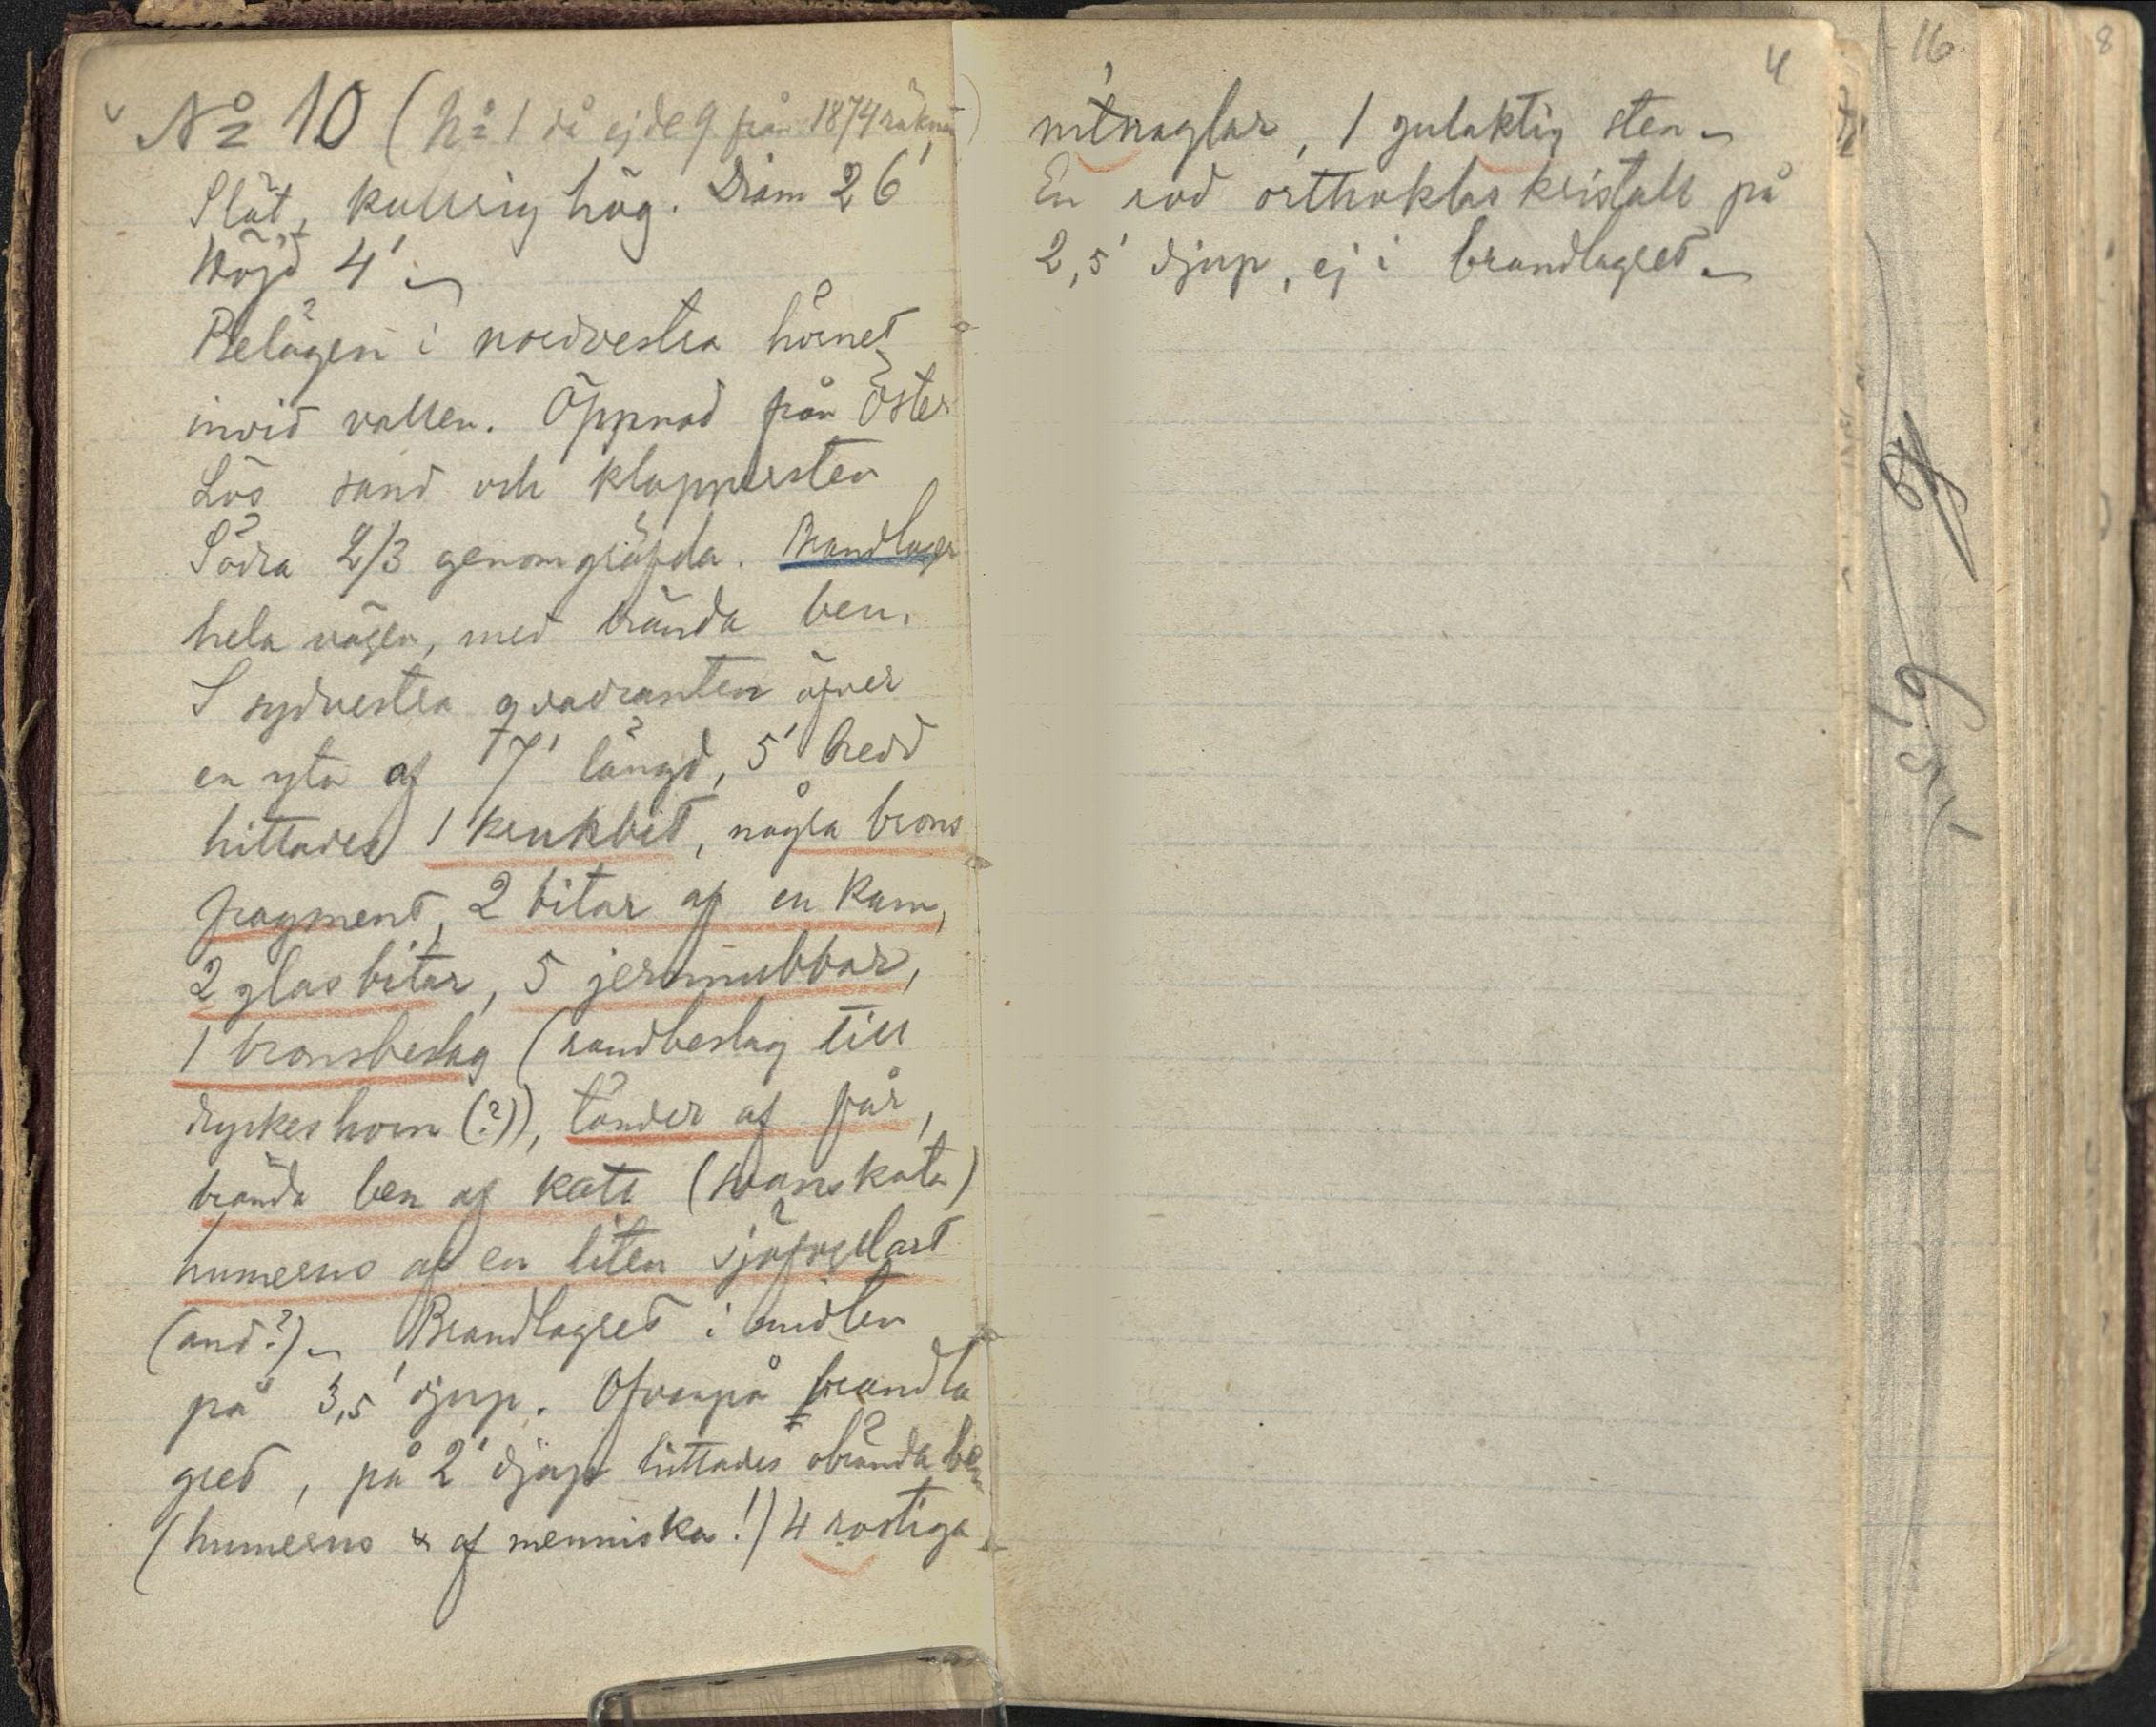 No 10 (No 1 då ej de 9 från 1874 räknas)
Slät, kullrig hög. Diam 26'
Höjd 4'
Belägen i nordvestra hörnet
invid vallen. Öppnad från Öster
Lös sand och klappersten
Södra 2/3 genomgräfda. Brandlager
hela vägen, med brända ben.
I sydvestra qvadranten öfver
en yta af 7' längd, 5' bredd
hittades 1 krukbit, några brons
fragment, 2 bitar af en kam,
2 glasbitar, 5 jernnubbar,
1 bronsbeslag (randbeslag till
dryckeshorn (?)), tänder af får,
brända ben af katt (svanskota)
humerus af en liten sjöfogelart
(and?) Brandlagret i midten
på 3,5' djup. Ofvanpå brandla
gret, på 2' djup hittades obrända ben
(humerus & af menniska!) 4 rostiga
nitnaglar, 1 gulaktig sten
En röd orthoklaskristall på
2,5' djup, ej i brandlagret
4
16
8